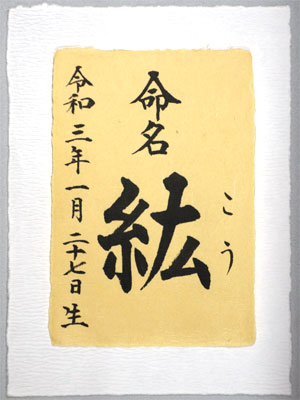 命名
紘
こう
令和三年一月二十七日生